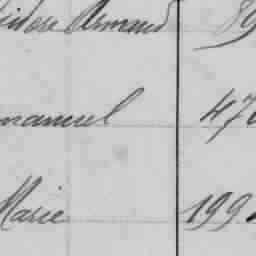 Isidore Armand 89
manuel 470
Marie 199